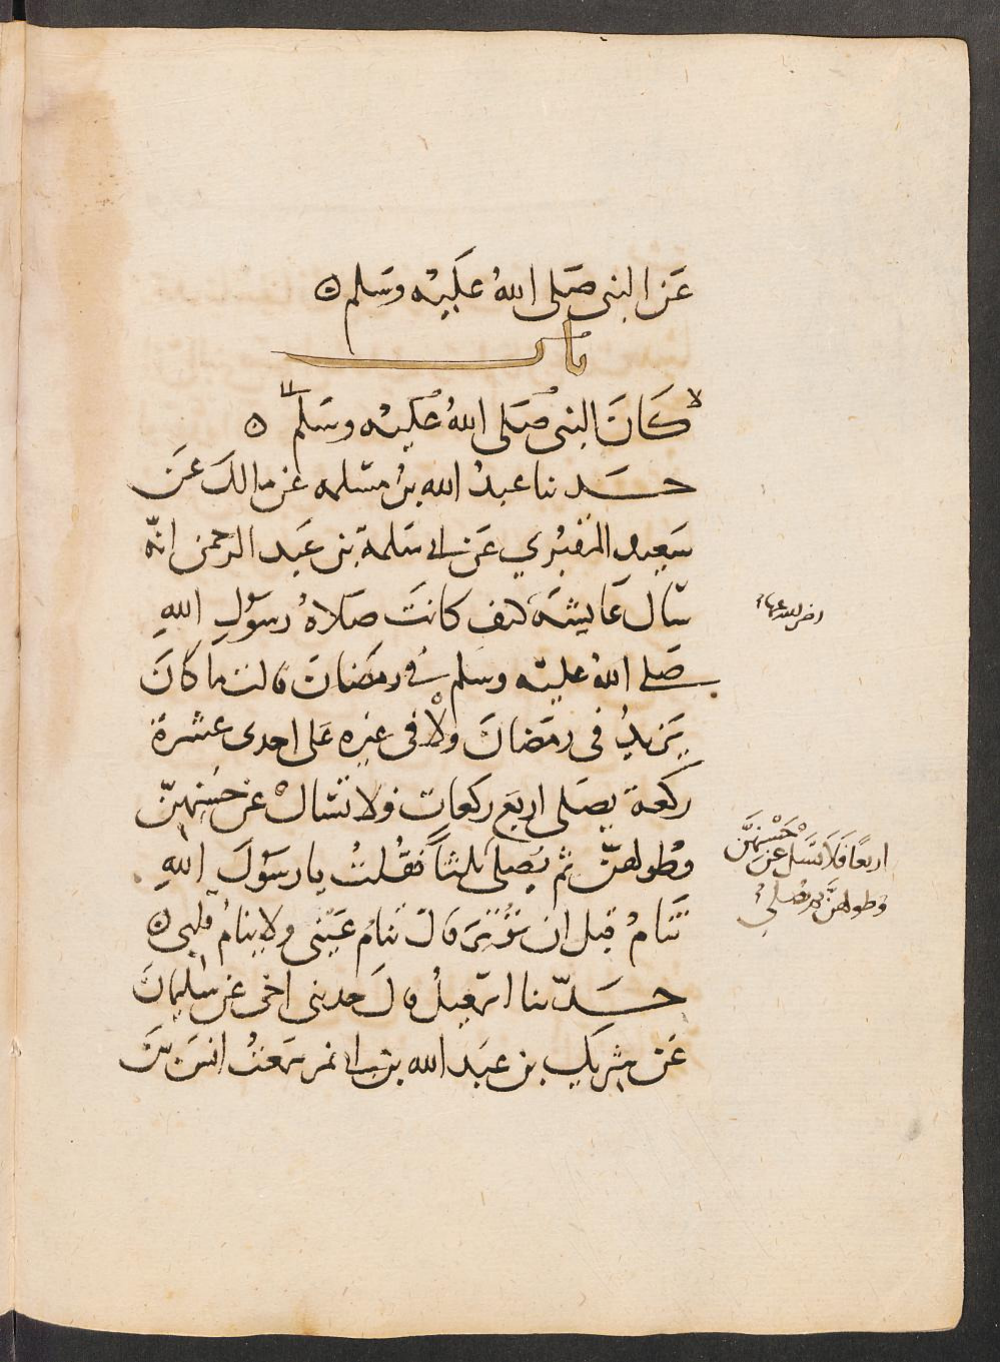 عَن النبي صَلى اللهُ عَلَيْه وَسَلم ه
باب
كَانَ النبي صَلى اللهُ عَليْه وسَلم ه
حَدثنا عبدُ الله بنُ مَسْلمه عَن مالك عَن
سَعِيد المَقبُري عَن ابي سَلمة بن عَبد الرحمن انّه
سَال عَايشَة كيف كانَت صَلاةُ رسُولِ اللهِ
صَلى اللهُ عليْه وسلم في رمَضانَ قالت ما كانَ
يَزيدُ في رمَضانَ ولا في غيره عَلى احدى عشرةَ
ركعة يصَلى اربع ركعات فلا تسْال عن حُسْنِهِنّ
وطُولهنّ ثم يُصَلى ثلثاً فقُلتُ يا رسُولَ اللهِ
تَنَامُ قبل ان تُوتِرَ قال تنَامُ عَيْنى ولا ينامُ قلبى ه
حَدّثنا اسمعيلُ قال حدثنى اخى عن سُليمانَ
عَن شرِيكِ بن عبَد الله بن ابي نمر سَمعتُ انسَ بنَ
رضي الله عنها
اربعًا فَلَا تَسَلْ عَن حُسْنِهِنَّ
وطولهنَّ ثم يصلي